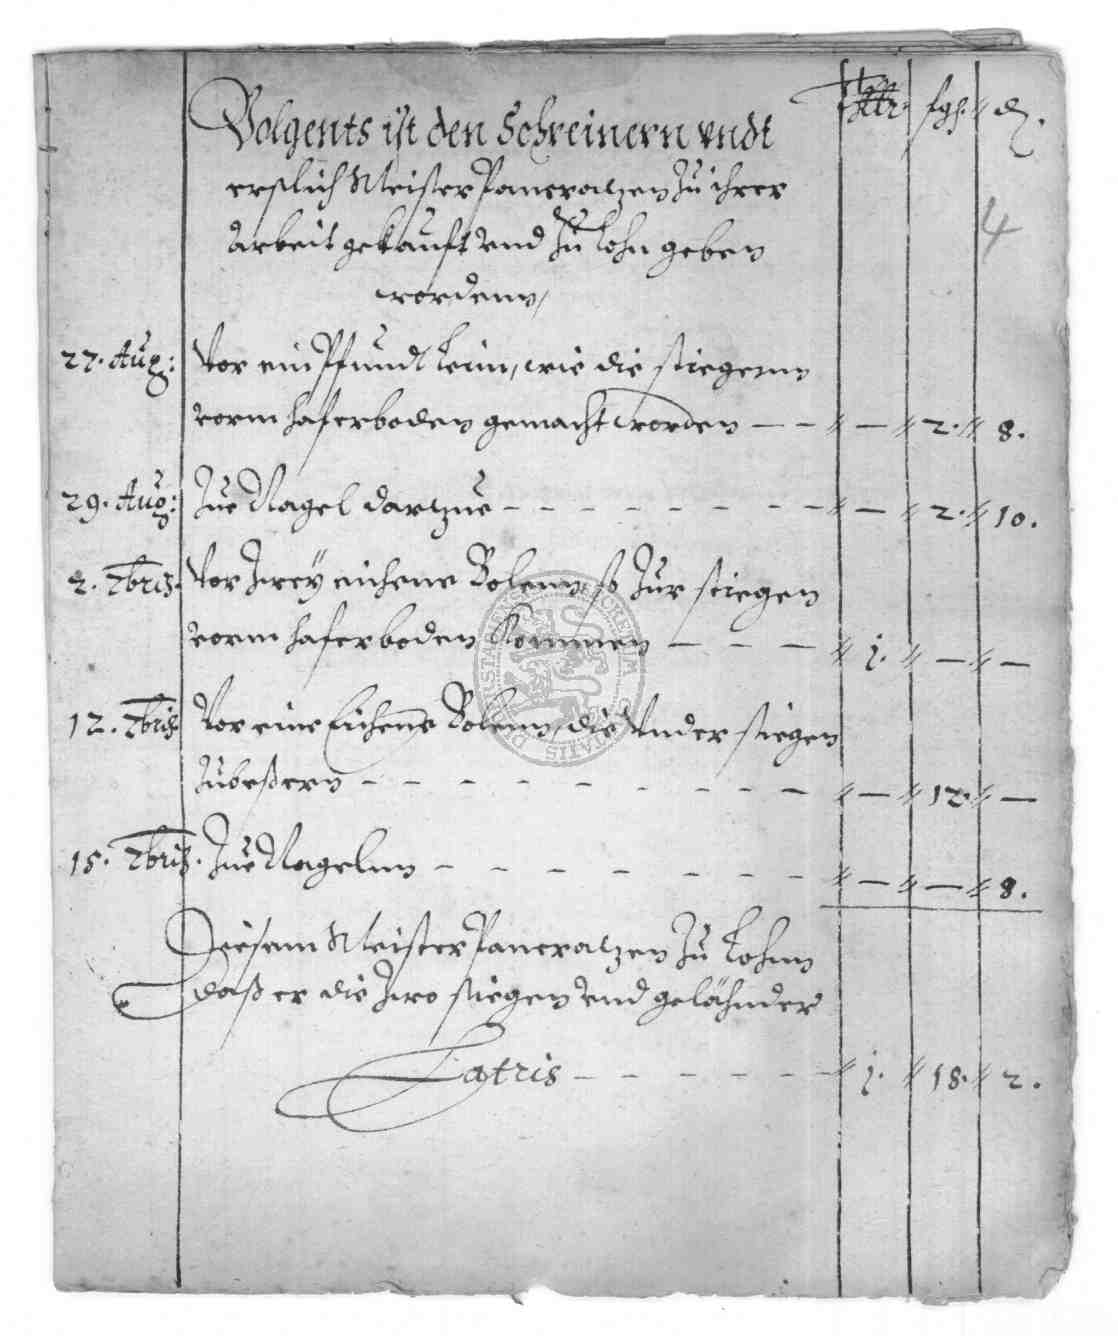 Volgents ist den Schreinern vndt
erstlich Meister Pancratzen zu ihrer
Arbeit gekaufft vnd zu lohn geben
worden,
fl. ßgh. ₰.
4
27. Aug: Vor ein Pfundt Leim, wie die stiegenn
vorm haferboden gemacht worden — — // — // 2. // 8.
29. Aug: Zue Nagel dartzue – – – – – – – – // — // 2. // 10.
2. 7bris. Vor Zwey eichene Bolenn, so zur stiegen
vorm haferboden kommen – – – // j. // — // —
12. 7bris Vor eine Eichene Bolenn, die Ander stiegen
zubeßern – – – – – – – – – // — // 12. // —
15. 7bris. Zue Nagelnn – – – – – – – // — // — // 8.
Diesem Meister Pancratzen zu Lohnn
daß er die zwo stiegen vnd geländer
Latris – – – – – // j. // 18. // 2.